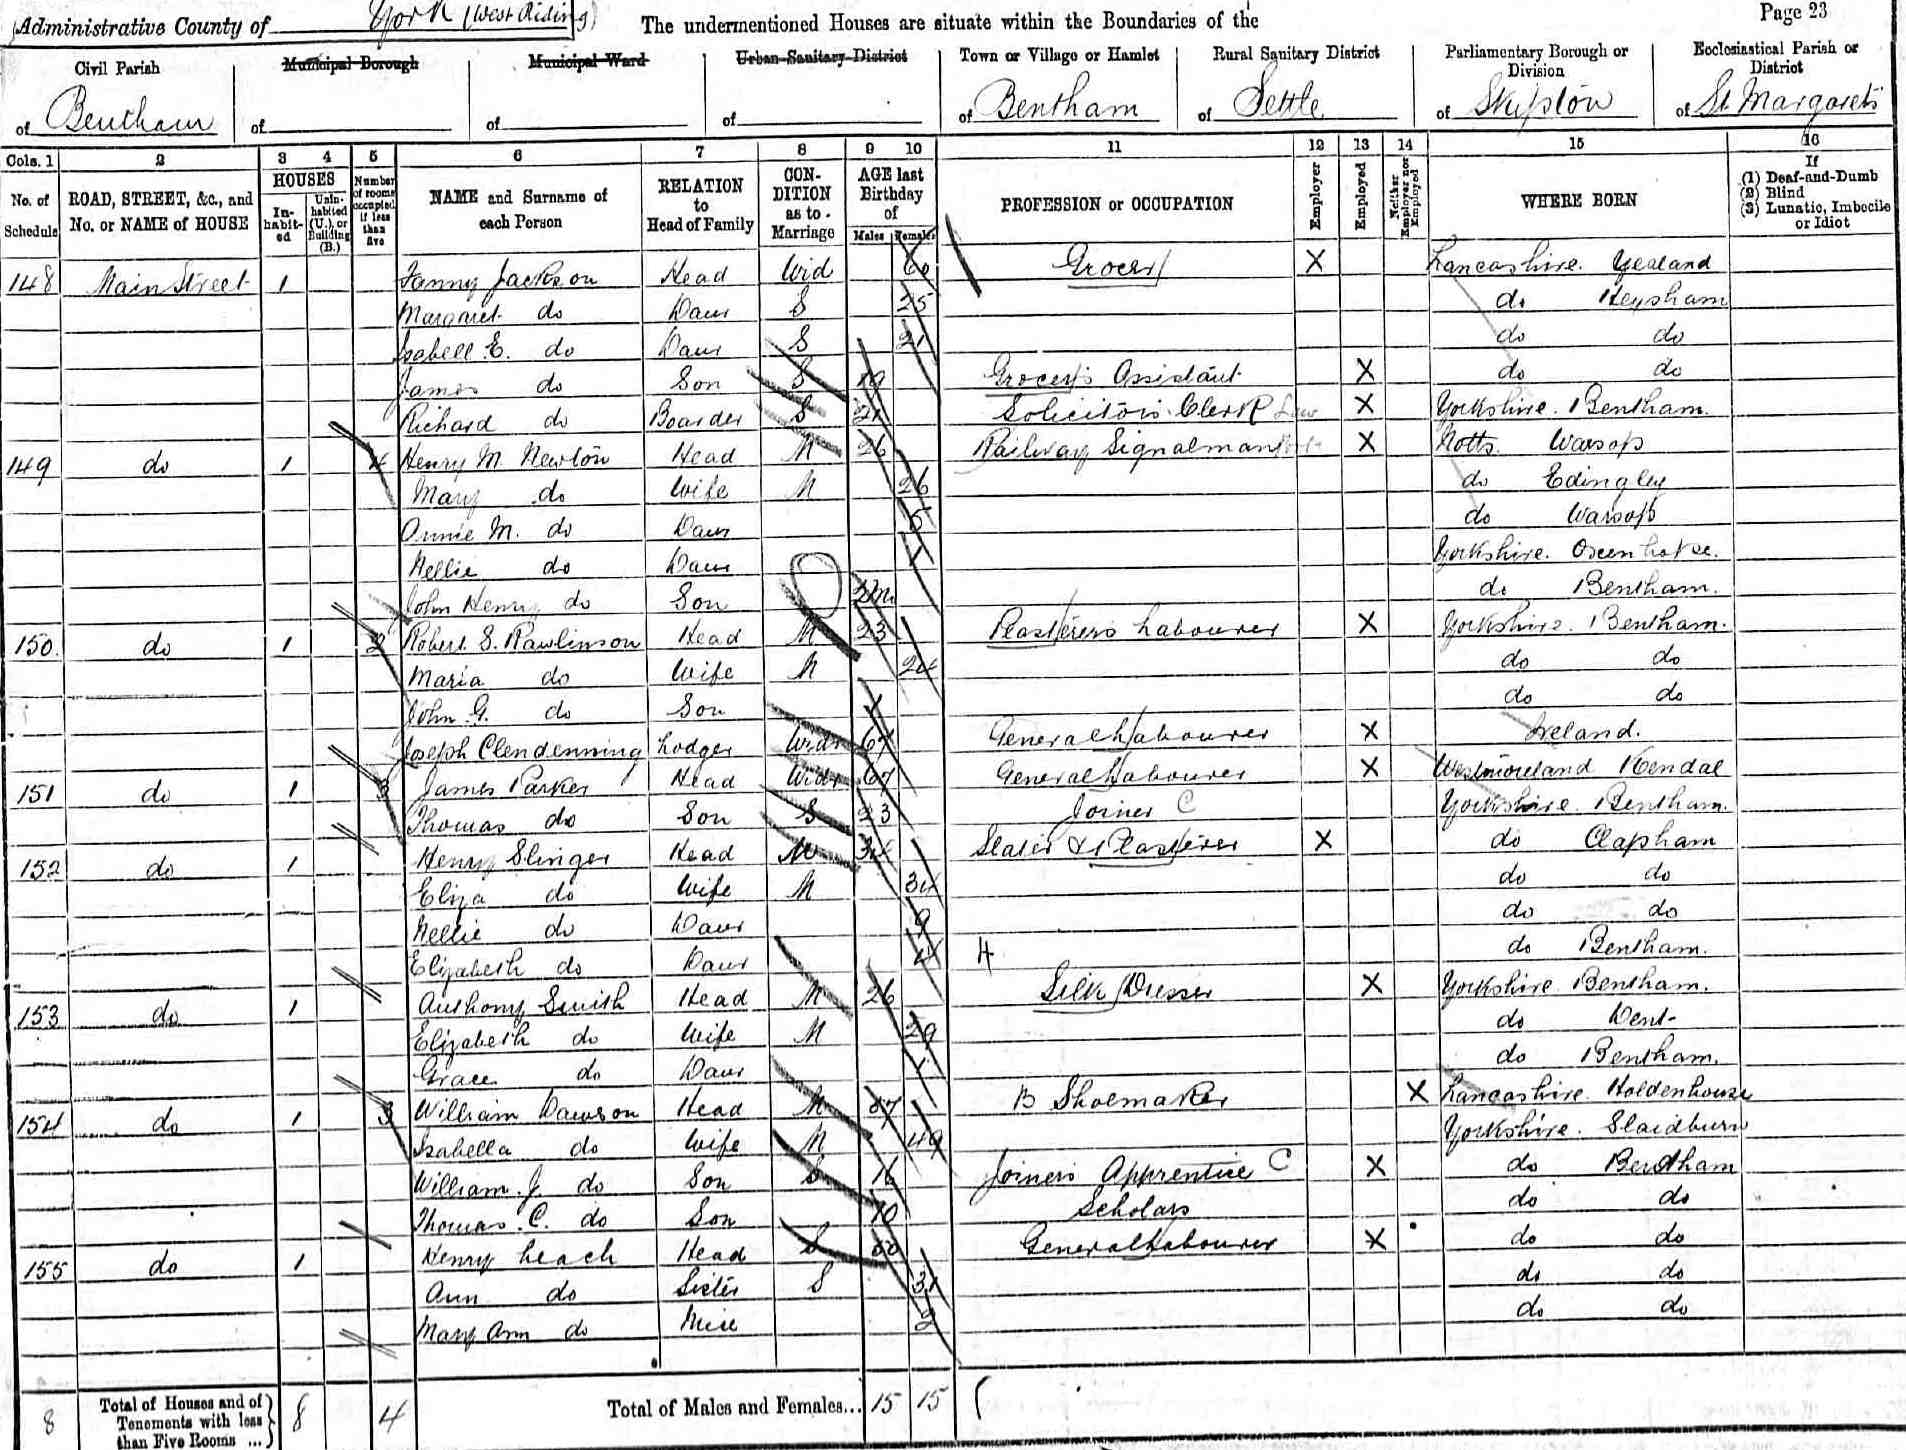 Administrative County of York (West Riding) The undermentioned Houses are situate within the Boundaries of the Page 23
Civil Parish of Bentham
Municipal Borough of
Municipal Ward of
Urban Sanitary District of
Town or Village or Hamlet of Bentham
Rural Sanitary District of Settle
Parliamentary Borough or Division of Skipton
Ecclesiastical Parish or District of St Margarets
Cols. 1 2 3 4 5 6 7 8 9 10 11 12 13 14 15 16
No. of Schedule
ROAD, STREET, &c., and No. or NAME of HOUSE
HOUSES
In-habit-ed
Unin-habited (U.), or Building (B.)
Number of rooms occupied if less than five
NAME and Surname of each Person
RELATION to Head of Family
CON-DITION as to Marriage
AGE last Birthday of
Males Females
PROFESSION or OCCUPATION
Employer
Employed
Neither Employer nor Employed
WHERE BORN
If
(1) Deaf-and-Dumb
(2) Blind
(3) Lunatic, Imbecile or Idiot
148 Main Street 1 Fanny Jackson Head Wid 60 Grocer X Lancashire. Yealand
Margaret do Daur S 25 do Heysham
Isabell E. do Daur S 21 do do
James do Son S 19 Grocer's Assistant X do do
Richard do Boarder S 21 Solicitors Clerk Law X Yorkshire. Bentham.
149 do 1 4 Henry M. Newton Head M 26 Railway Signalman X Notts. Warsop
Mary do Wife M 26 do Edingley
Annie M. do Daur 5 do Warsop
Nellie do Daur 1 Yorkshire.
John Henry do Son 2m do Bentham.
150. do 1 2 Robert S. Rawlinson Head M 23 Plasterers Labourer X Yorkshire. Bentham.
Maria do Wife M 24 do do
John G. do Son 1 do do
Joseph Clendenning Lodger Widr 67 General Labourer X Ireland.
151 do 1 3 James Parker Head Widr 67 General Labourer X Westmoreland Kendal
Thomas do Son S 23 Joiner C Yorkshire. Bentham.
152 do 1 Henry Slinger Head M 34 Slater & Plasterer X do Clapham
Eliza do Wife M 34 do do
Nellie do Daur 9 do do
Elizabeth do Daur 4 do Bentham.
153 do 1 Anthony Smith Head M 26 Silk Dresser X Yorkshire Bentham.
Elizabeth do Wife M 29 do Dent
Grace do Daur 1 do Bentham.
154 do 1 3 William Dawson Head M 57 B Shoemaker X Lancashire. Holdenhouse
Isabella do Wife M 49 Yorkshire. Slaidburn
William J. do Son S 16 Joiners Apprentice C X do Bentham
Thomas C. do Son 10 Scholars do do
155 do 1 Henry Leach Head S 50 General Labourer X do do
Ann do Sister S 31 do do
Mary Ann do Niece 2 do do
8 Total of Houses and of Tenements with less than Five Rooms ... 8 4 Total of Males and Females... 15 15